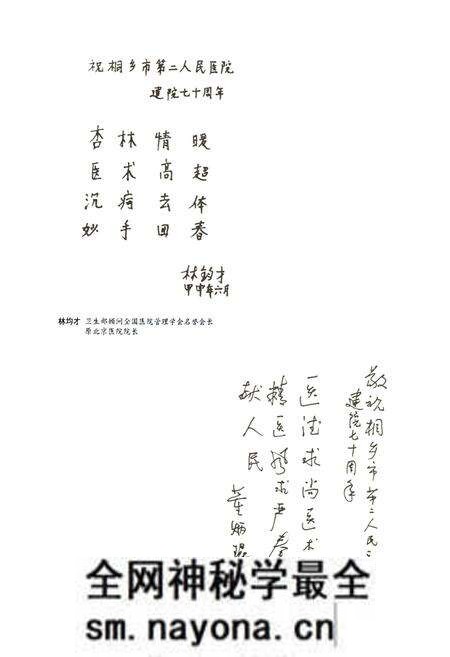 祝桐乡市第二人民医院
建院七十周年
杏林情暖
医术高超
沉疴去体
妙手回春
林钧才
甲申年六月
林均才 卫生部顾问全国医院管理学会名誉会长
原北京医院院长
敬祝桐乡市第二人民
建院七十周年
医德求尚医术
精医风求严奉
献人民
董炳琨
全网神秘学最全
sm.nayona.cn